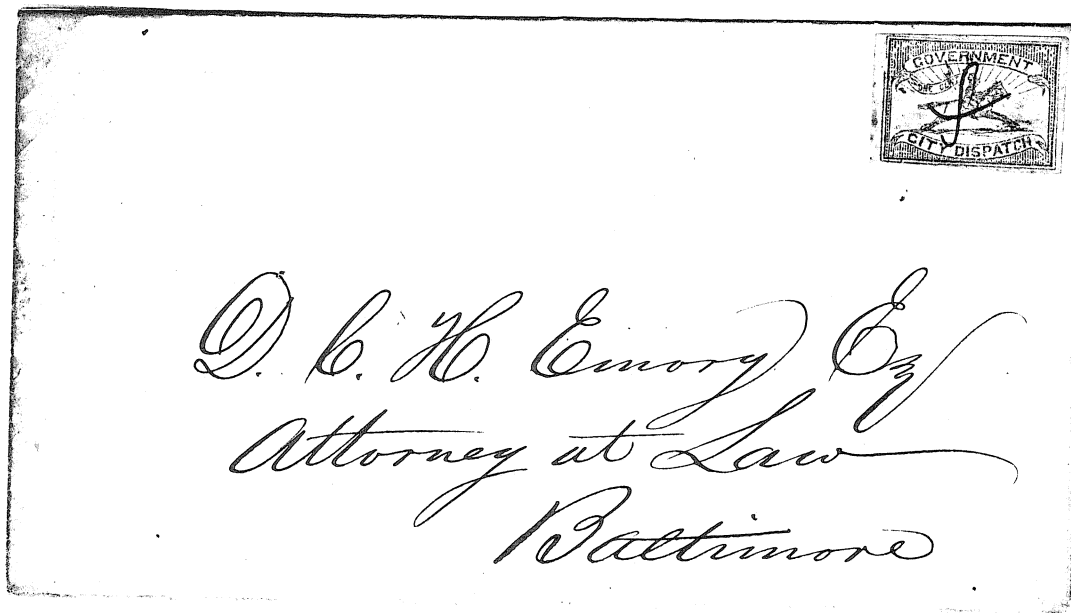 GOVERNMENT
ONE CENT
CITY DISPATCH
D. C. H. Emory Esq
Attorney at Law
Baltimore